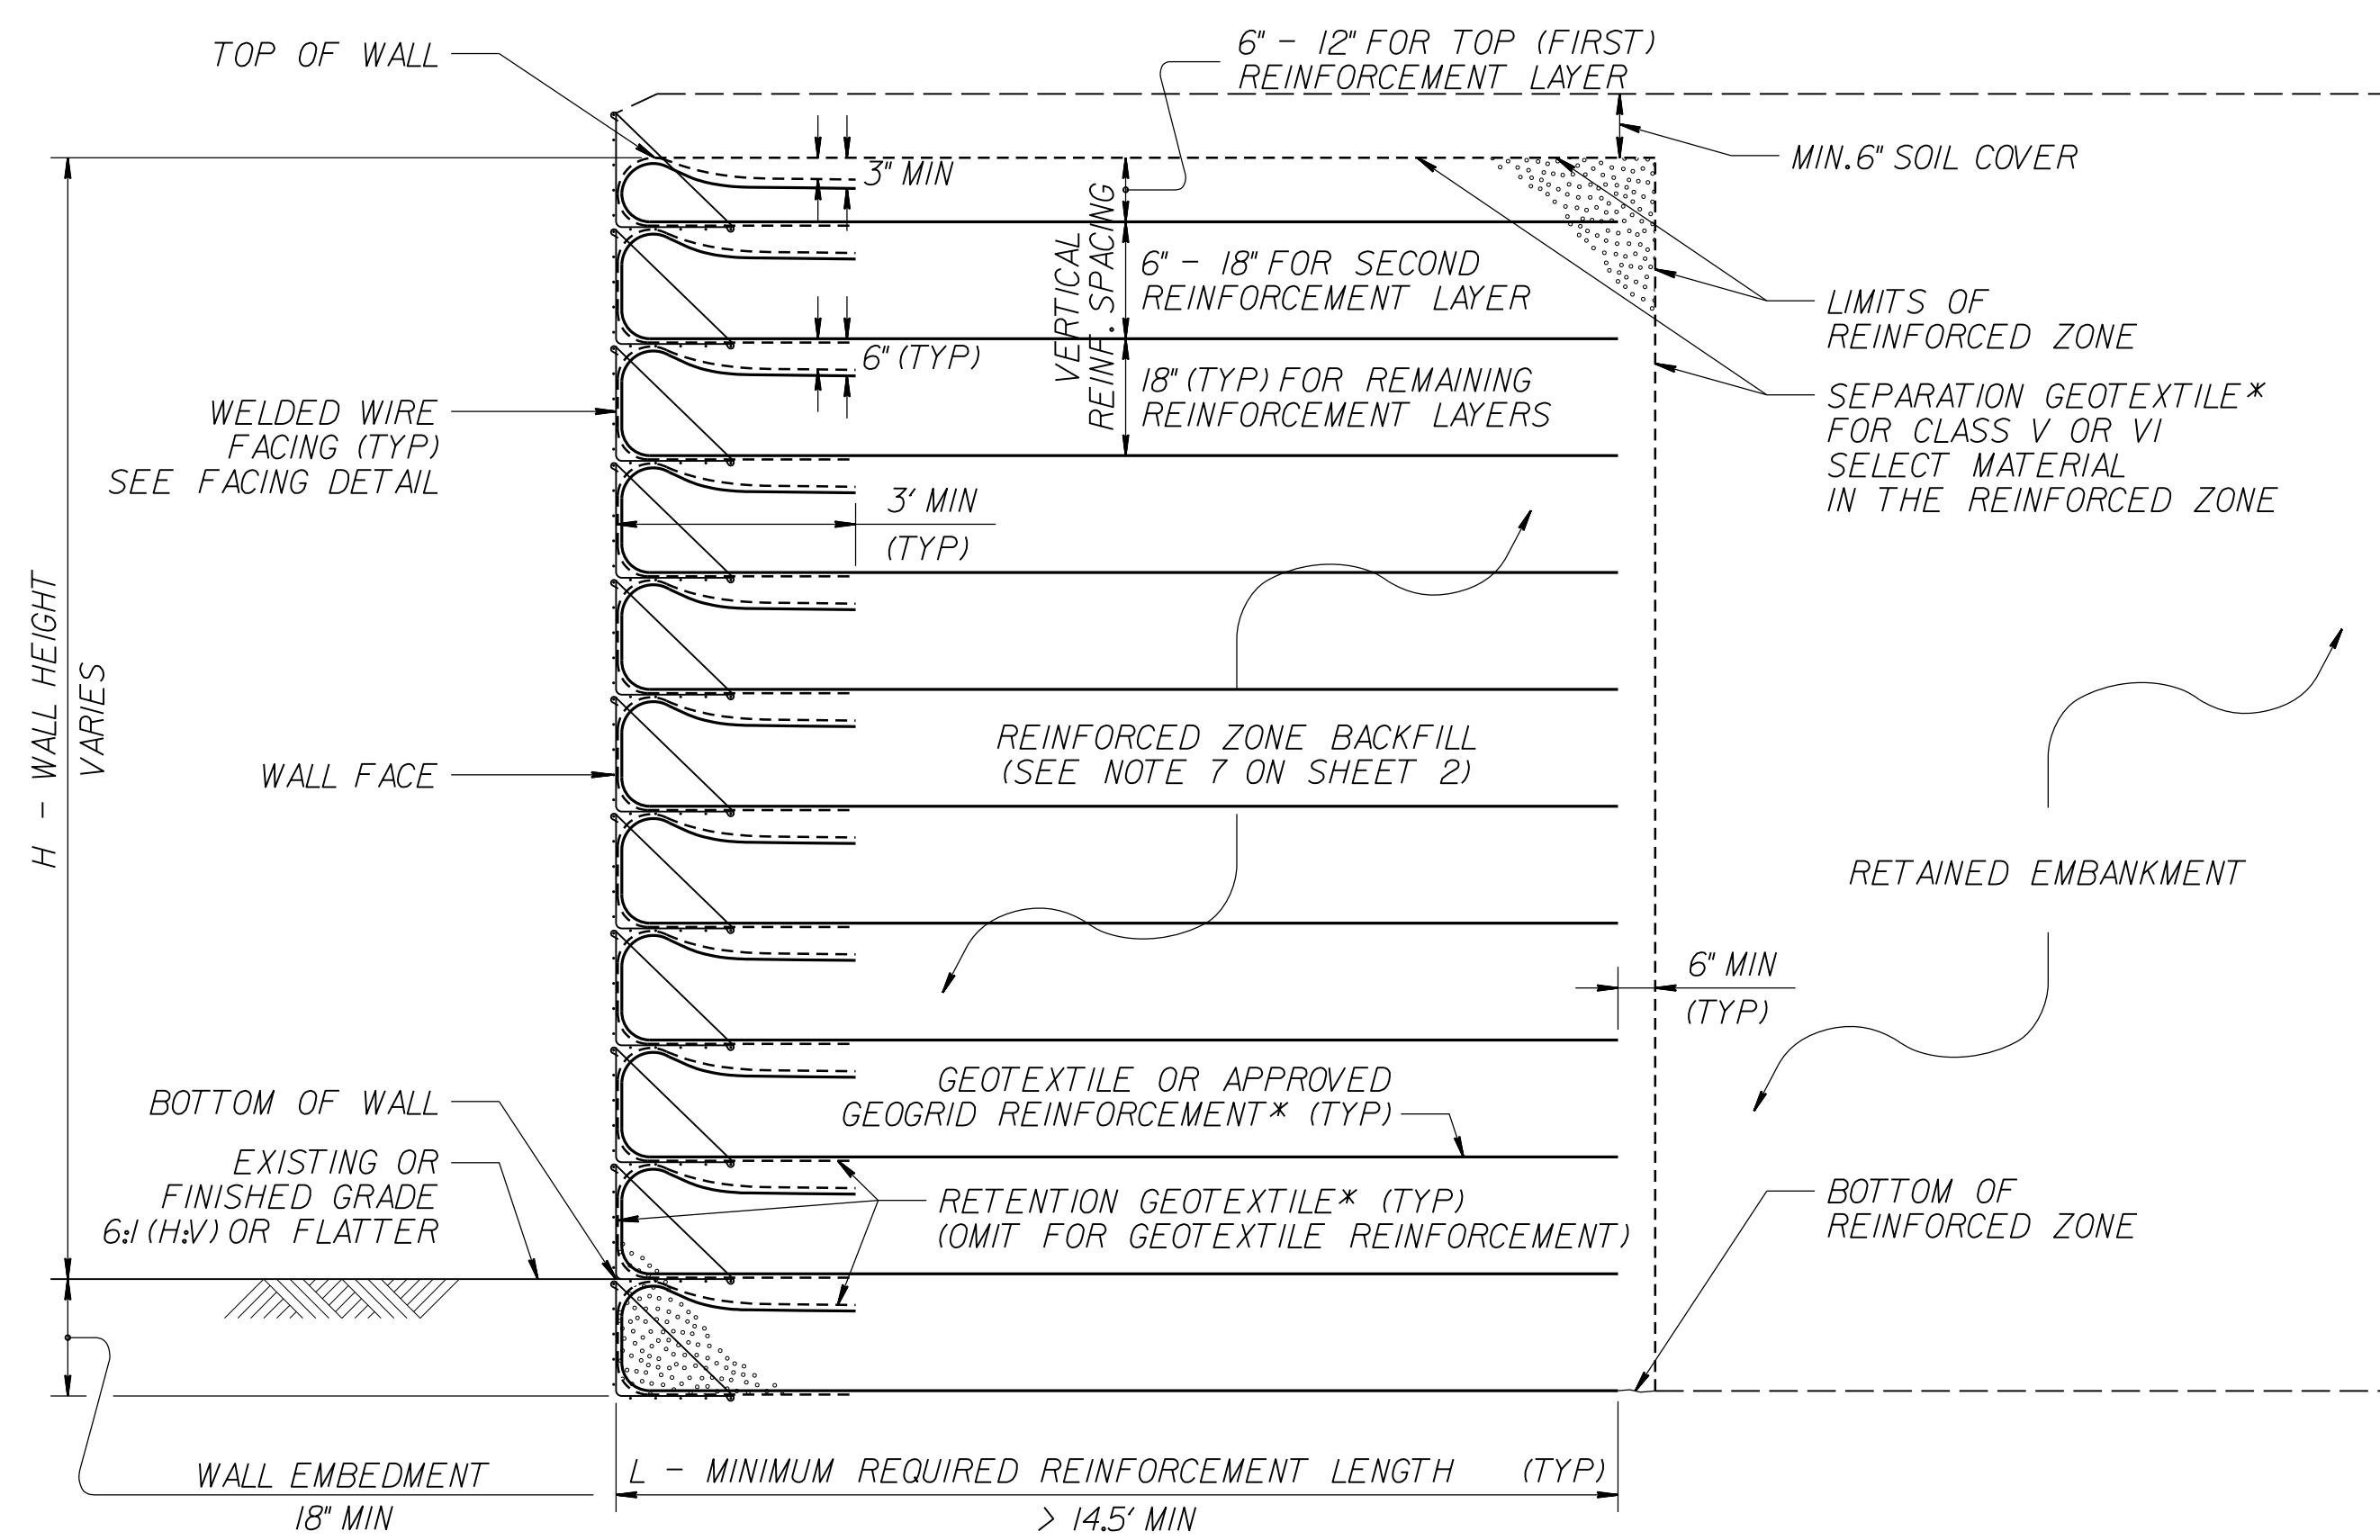 TOP OF WALL
6" - 12" FOR TOP (FIRST)
REINFORCEMENT LAYER
MIN. 6" SOIL COVER
3" MIN
VERTICAL
REINF. SPACING
6" - 18" FOR SECOND
REINFORCEMENT LAYER
LIMITS OF
REINFORCED ZONE
6" (TYP)
18" (TYP) FOR REMAINING
REINFORCEMENT LAYERS
SEPARATION GEOTEXTILE*
FOR CLASS V OR VI
SELECT MATERIAL
IN THE REINFORCED ZONE
WELDED WIRE
FACING (TYP)
SEE FACING DETAIL
3' MIN
(TYP)
H - WALL HEIGHT
VARIES
WALL FACE
REINFORCED ZONE BACKFILL
(SEE NOTE 7 ON SHEET 2)
RETAINED EMBANKMENT
6" MIN
(TYP)
BOTTOM OF WALL
GEOTEXTILE OR APPROVED
GEOGRID REINFORCEMENT* (TYP)
EXISTING OR
FINISHED GRADE
6:1 (H:V) OR FLATTER
RETENTION GEOTEXTILE* (TYP)
(OMIT FOR GEOTEXTILE REINFORCEMENT)
BOTTOM OF
REINFORCED ZONE
WALL EMBEDMENT
18" MIN
L - MINIMUM REQUIRED REINFORCEMENT LENGTH (TYP)
> 14.5' MIN